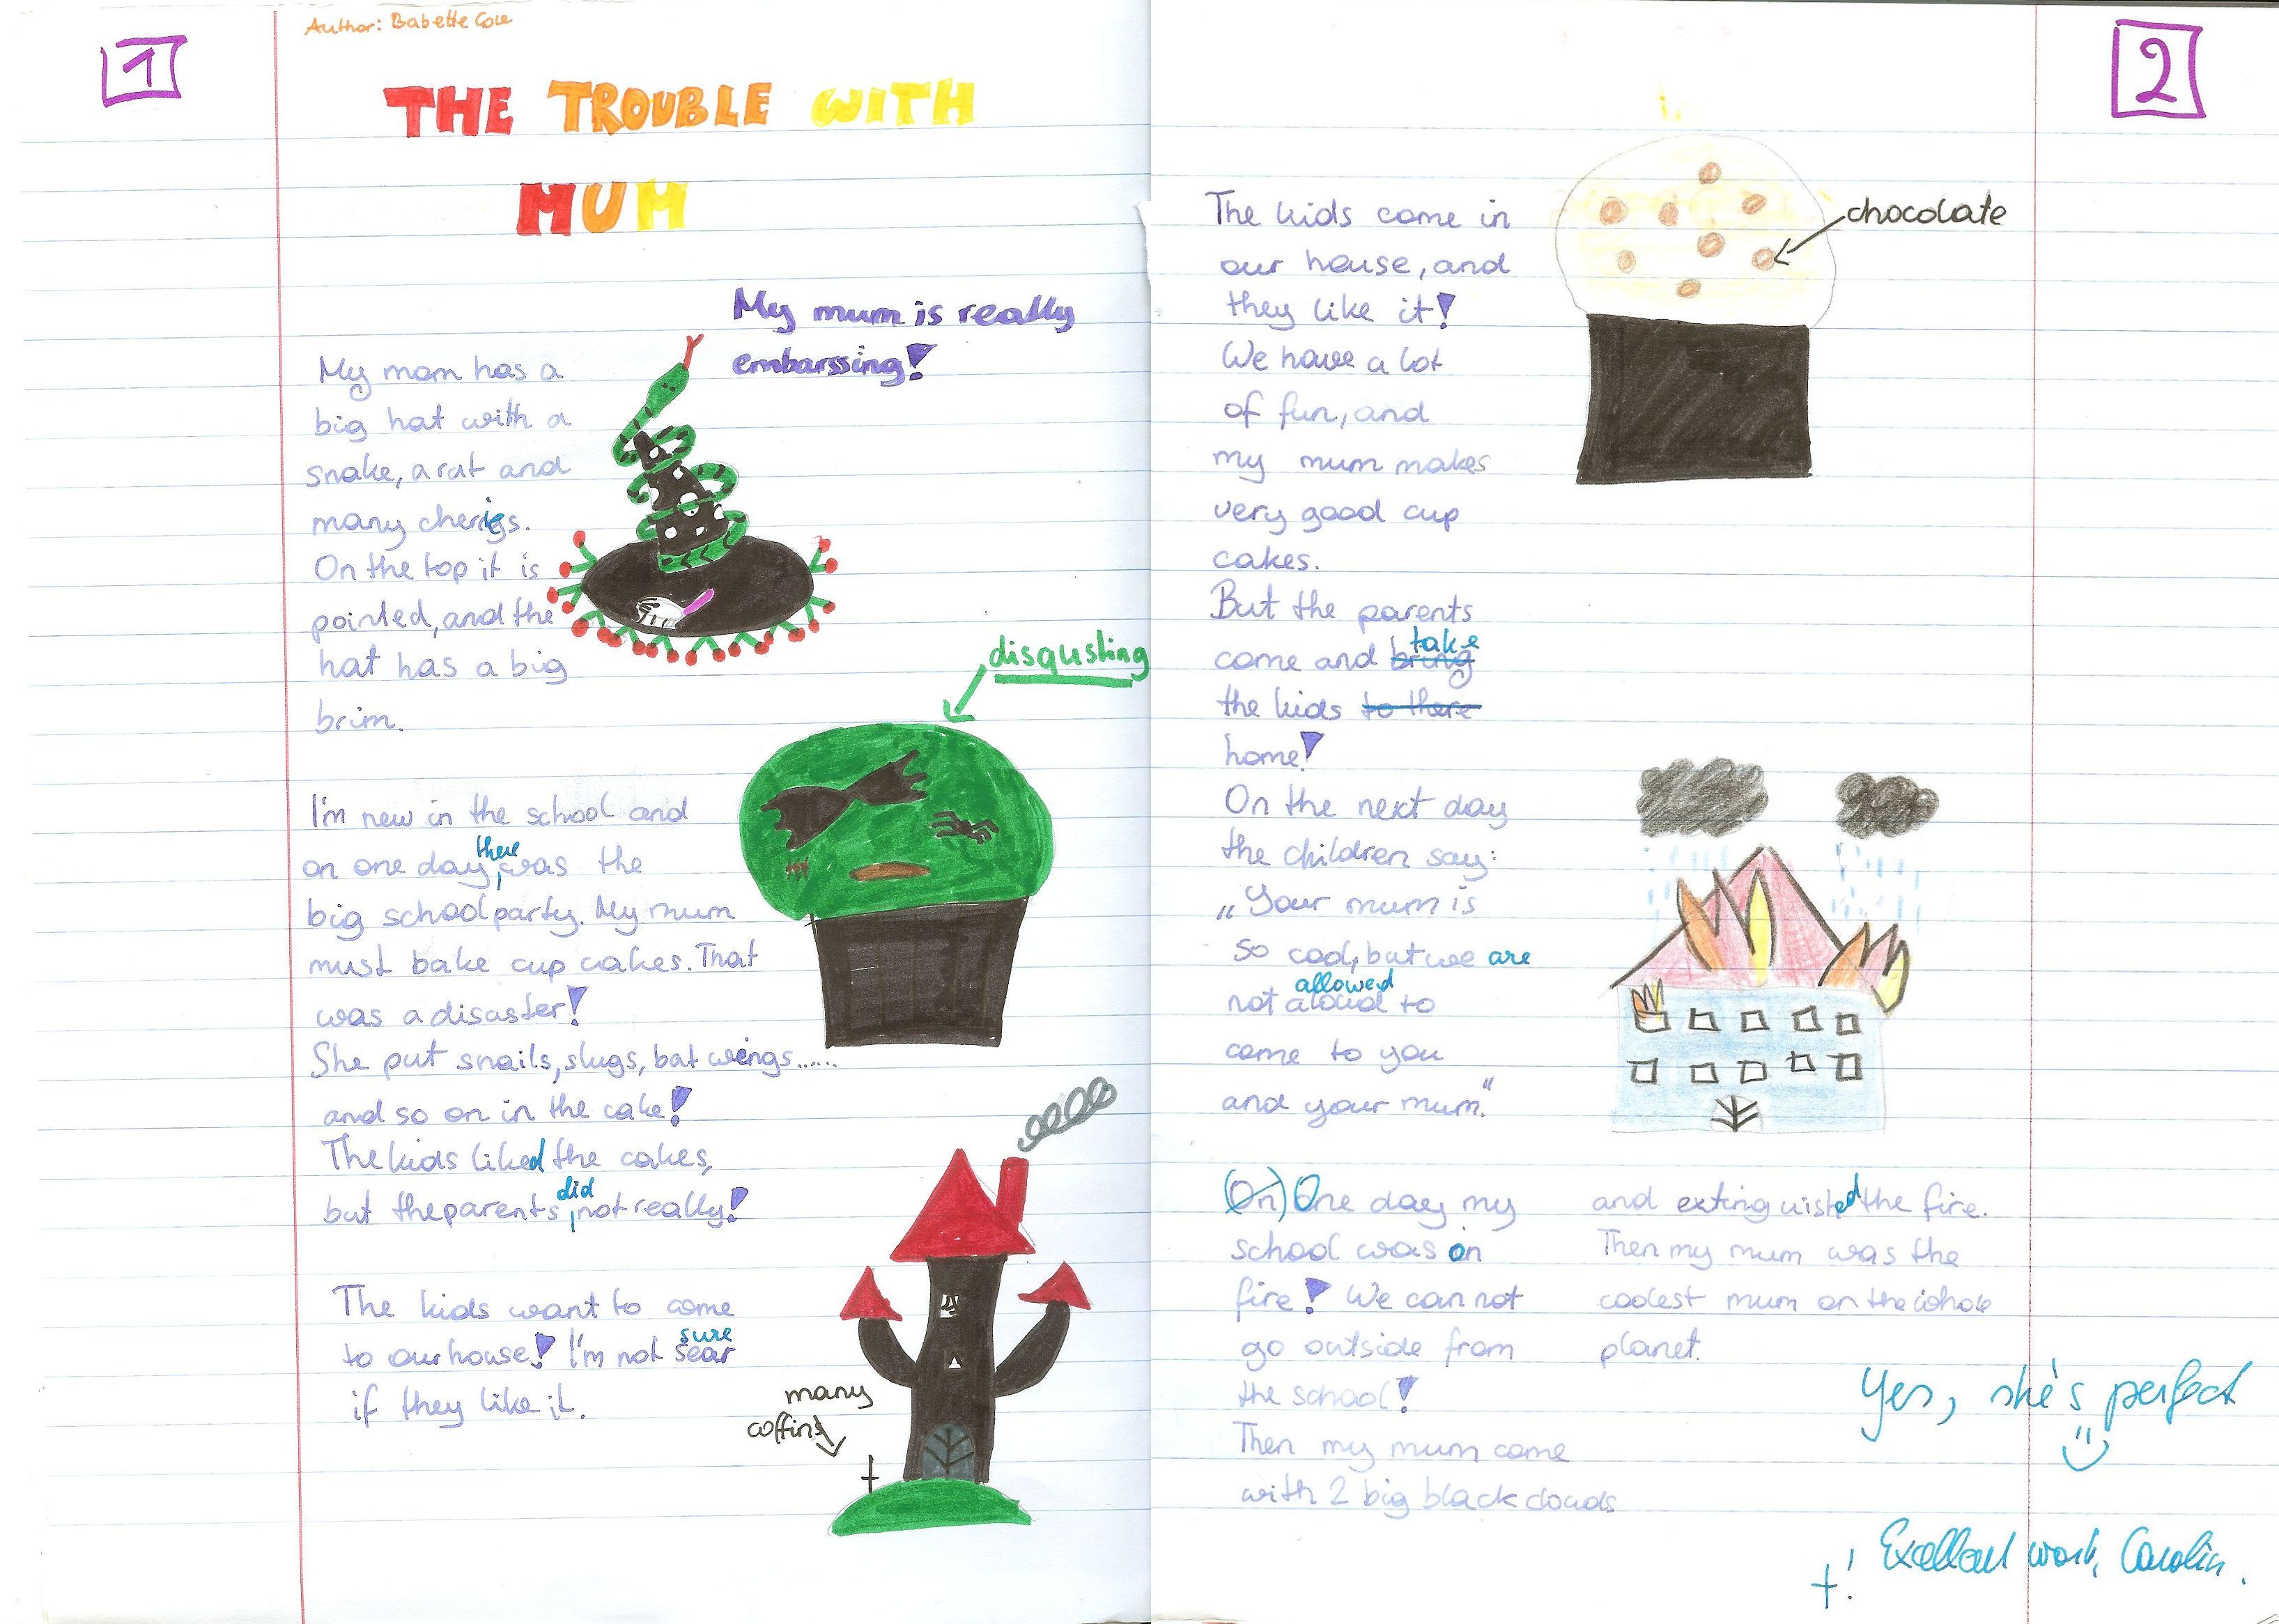 1
Author: Babette Cole
THE TROUBLE WITH
MUM
My mum is really
embarssing!
My mom has a
big hat with a
snake, a rat and
many cheries.
On the top it is
pointed, and the
hat has a big
brim.
disgusting
I'm new in the school and
there
on one day, was the
big schoolparty. My mum
must bake cup cakes. That
was a disaster!
She put snails, slugs, bat wings......
and so on in the cake!
The kids liked the cakes,
did
but the parents not really!
The kids want to come
sure
to our house! I'm not sear
if they like it.
many
coffins
2
chocolate
The kids come in
our house, and
they like it!
We have a lot
of fun, and
my mum makes
very good cup
cakes.
But the parents
take
come and bring
the kids to there
home!
On the next day
the children say:
„Your mum is
so cool, but we are
allowed
not aloud to
come to you
and your mum."
(On) One day my
school was on
fire! We can not
go outside from
the school!
Then my mum come
with 2 big black clouds
and extinguished the fire.
Then my mum was the
coolest mum on the whole
planet.
Yes, she's perfect
Excellent work, Carolin.